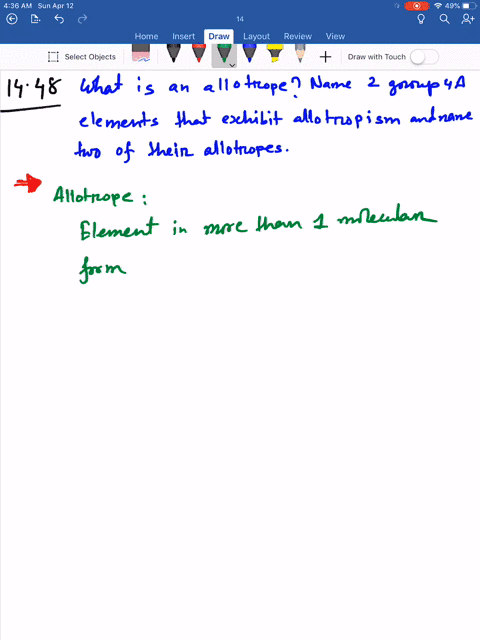 4:36 AM Sun Apr 12
49%
14
Home Insert Draw Layout Review View
Select Objects
Draw with Touch
14.48 What is an allotrope? Name 2 group 4A
elements that exhibit allotropism and name
two of their allotropes.
Allotrope:
Element in more than 1 molecular
form